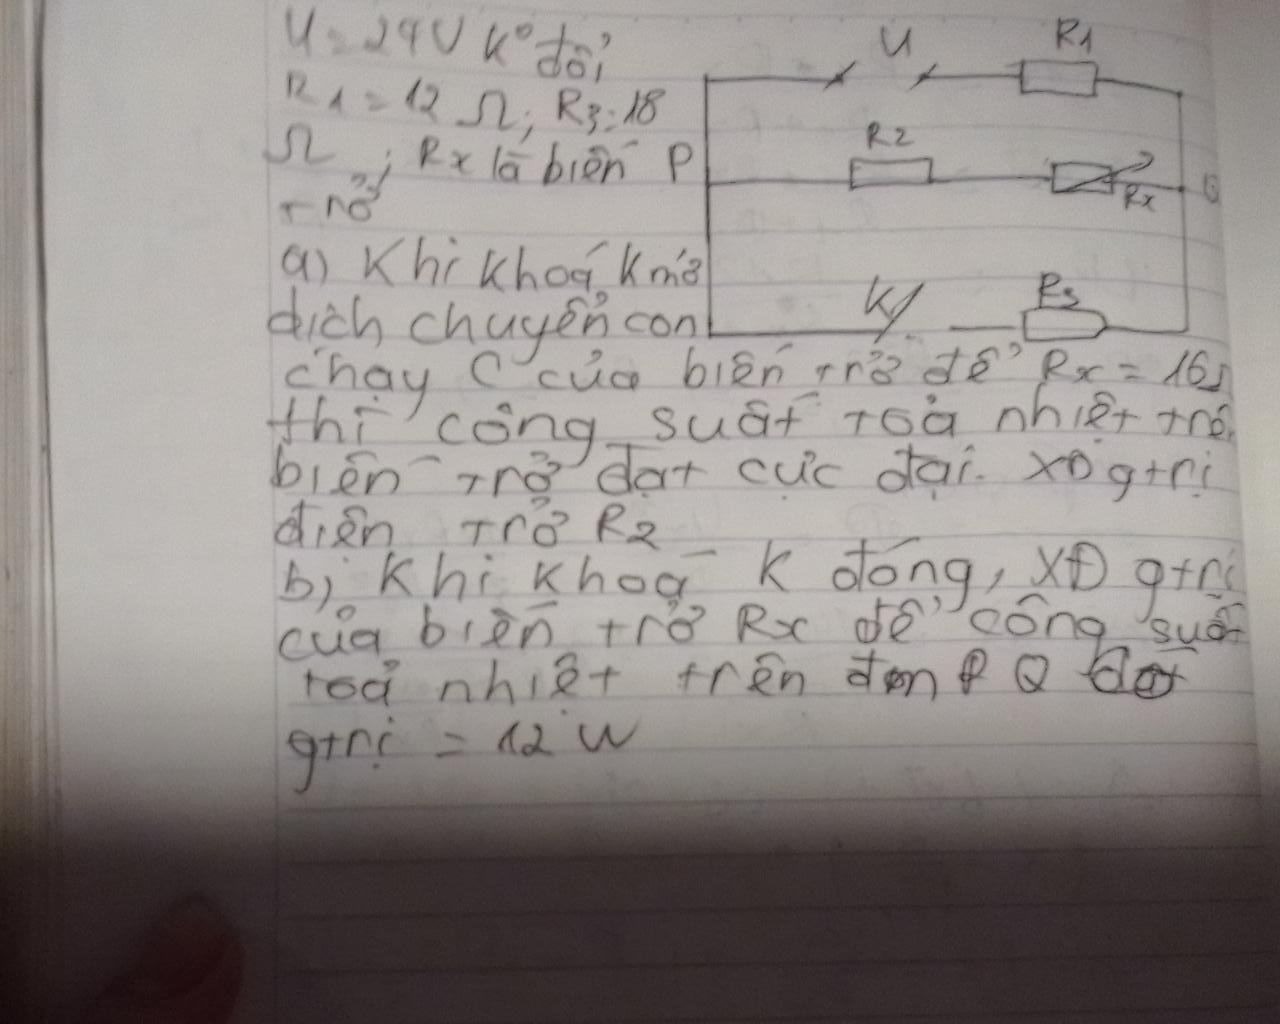 U = 24V k° đổi
R1 = 12 Ω; R3 = 18
Ω ; Rx là biến
trở
U
R1
R2
Rx
P
K
R3
a) Khi khoá K mở
dịch chuyển con
chạy C của biến trở để Rx = 16Ω
thì công suất toả nhiệt trên
biến trở đạt cực đại. XĐ gtrị
điện trở R2
b) Khi khoá K đóng, XĐ gtrị
của biến trở Rx để công suất
toả nhiệt trên đoạn P Q đạt
gtrị = 12 W